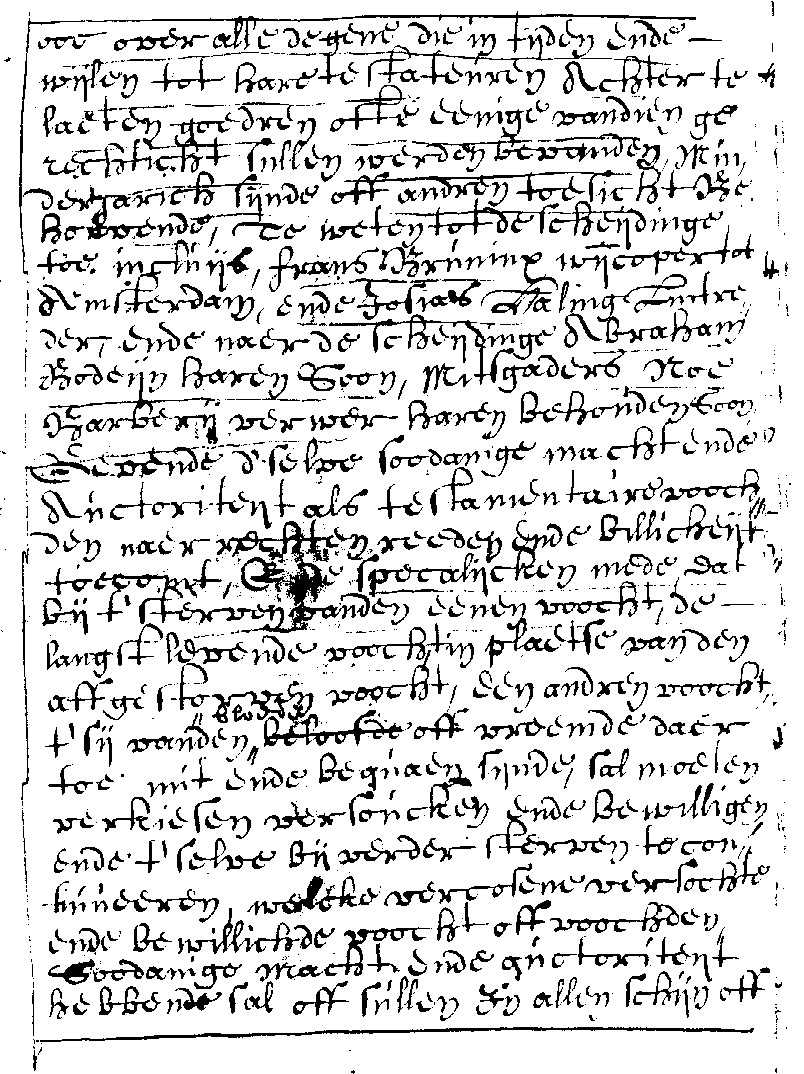 ooc over alle degene die in tijden ende
wijlen tot hare testateuren Achter te
laeten goedren ofte eenige vandien ge
rechticht sullen werden bevonden, Min,
derjarich sijnde off andren toesicht Be
hoevende, Te weten tot de scheijdinge
toe incluijs, frans Bruninx wijcoper tot
Amsterdam, ende Josias
der, ende naer de scheijdinge Abraham
Bodeijn haren Soon, Mitsgaders Noe
Barberij verwer haren behouden Soon
Gevende d'selve soodanige macht ende
Auctoriteijt als testamentaire vooch,,
den naer rechten reeden ende billicheijt
toecompt, Ende specalijcken mede dat
bij t' sterven vanden eenen voocht, de
langst levende voocht in plaetse van den
affgestorven voocht, een andren voocht,
t' sij vanden bloede off vreemde daer
toe nut ende bequaem sijnde, sal moeten
verkiesen versoucken ende bewilligen
ende t' selve bij verder sterven te con,,
tinueeren, welcke vercosene versochte
ende bewillichde voocht off voochden
Soodanige macht ende auctoriteijt
hebbende sal off sullen In allen schijn off